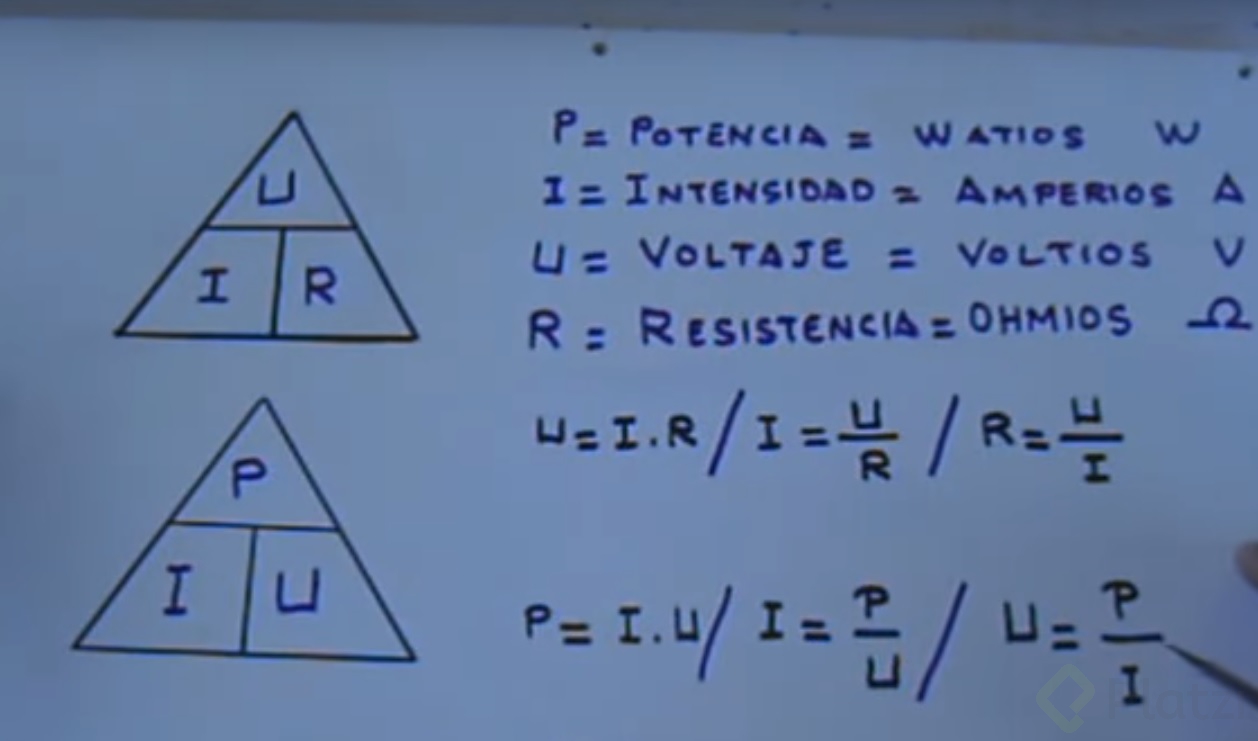 U
I R
P = POTENCIA = WATIOS W
I = INTENSIDAD = AMPERIOS A
U = VOLTAJE = VOLTIOS V
R = RESISTENCIA = OHMIOS Ω
U = I.R / I = U/R / R = U/I
P
I U
P = I.U / I = P/U / U = P/I
Platzi